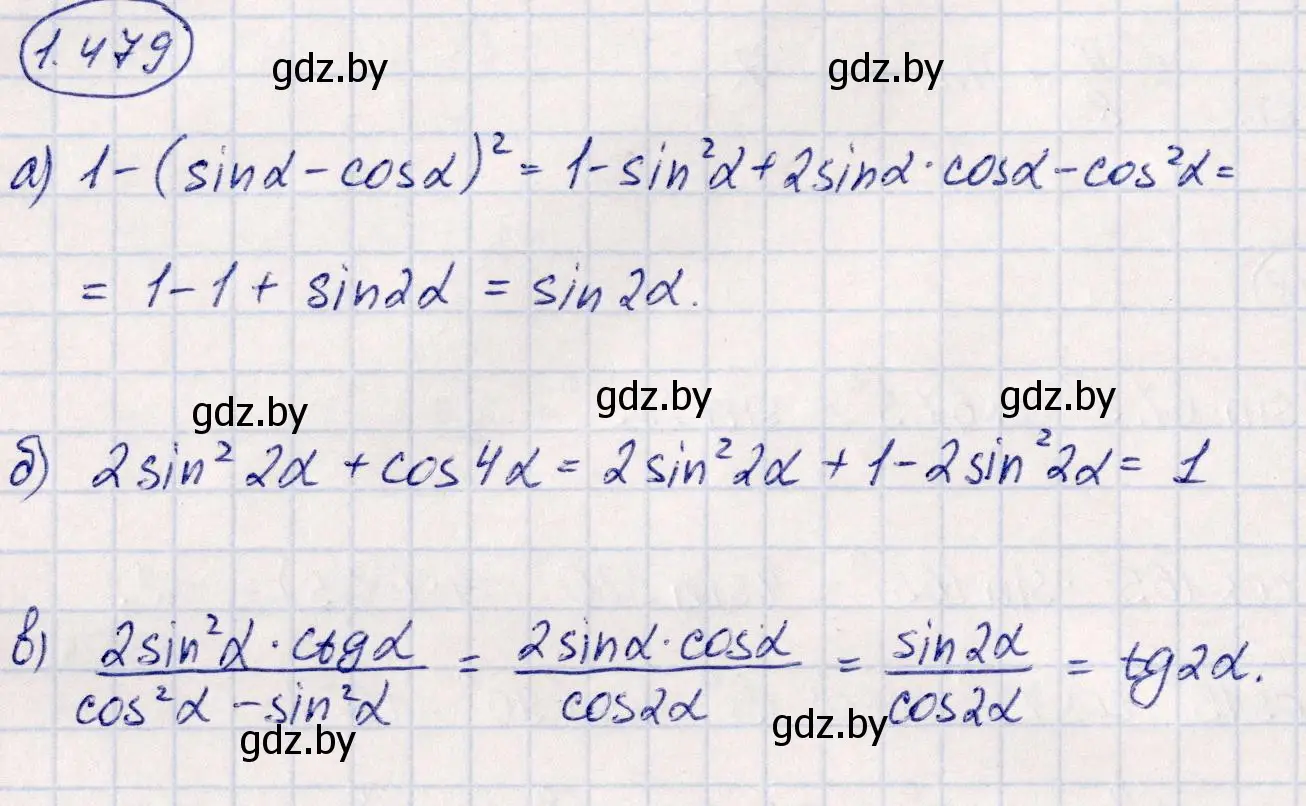 1.479
gdz.by gdz.by
а) 1-(sinα-cosα)² = 1-sin²α+2sinα·cosα-cos²α=
= 1-1+ sin2α = sin2α.
gdz.by gdz.by gdz.by
б) 2sin² 2α + cos4α = 2sin²2α + 1-2sin²2α = 1
в) 2sin²α · ctgα / cos²α - sin²α = 2sinα·cosα / cos2α = sin2α / cos2α = tg2α.
gdz.by gdz.by